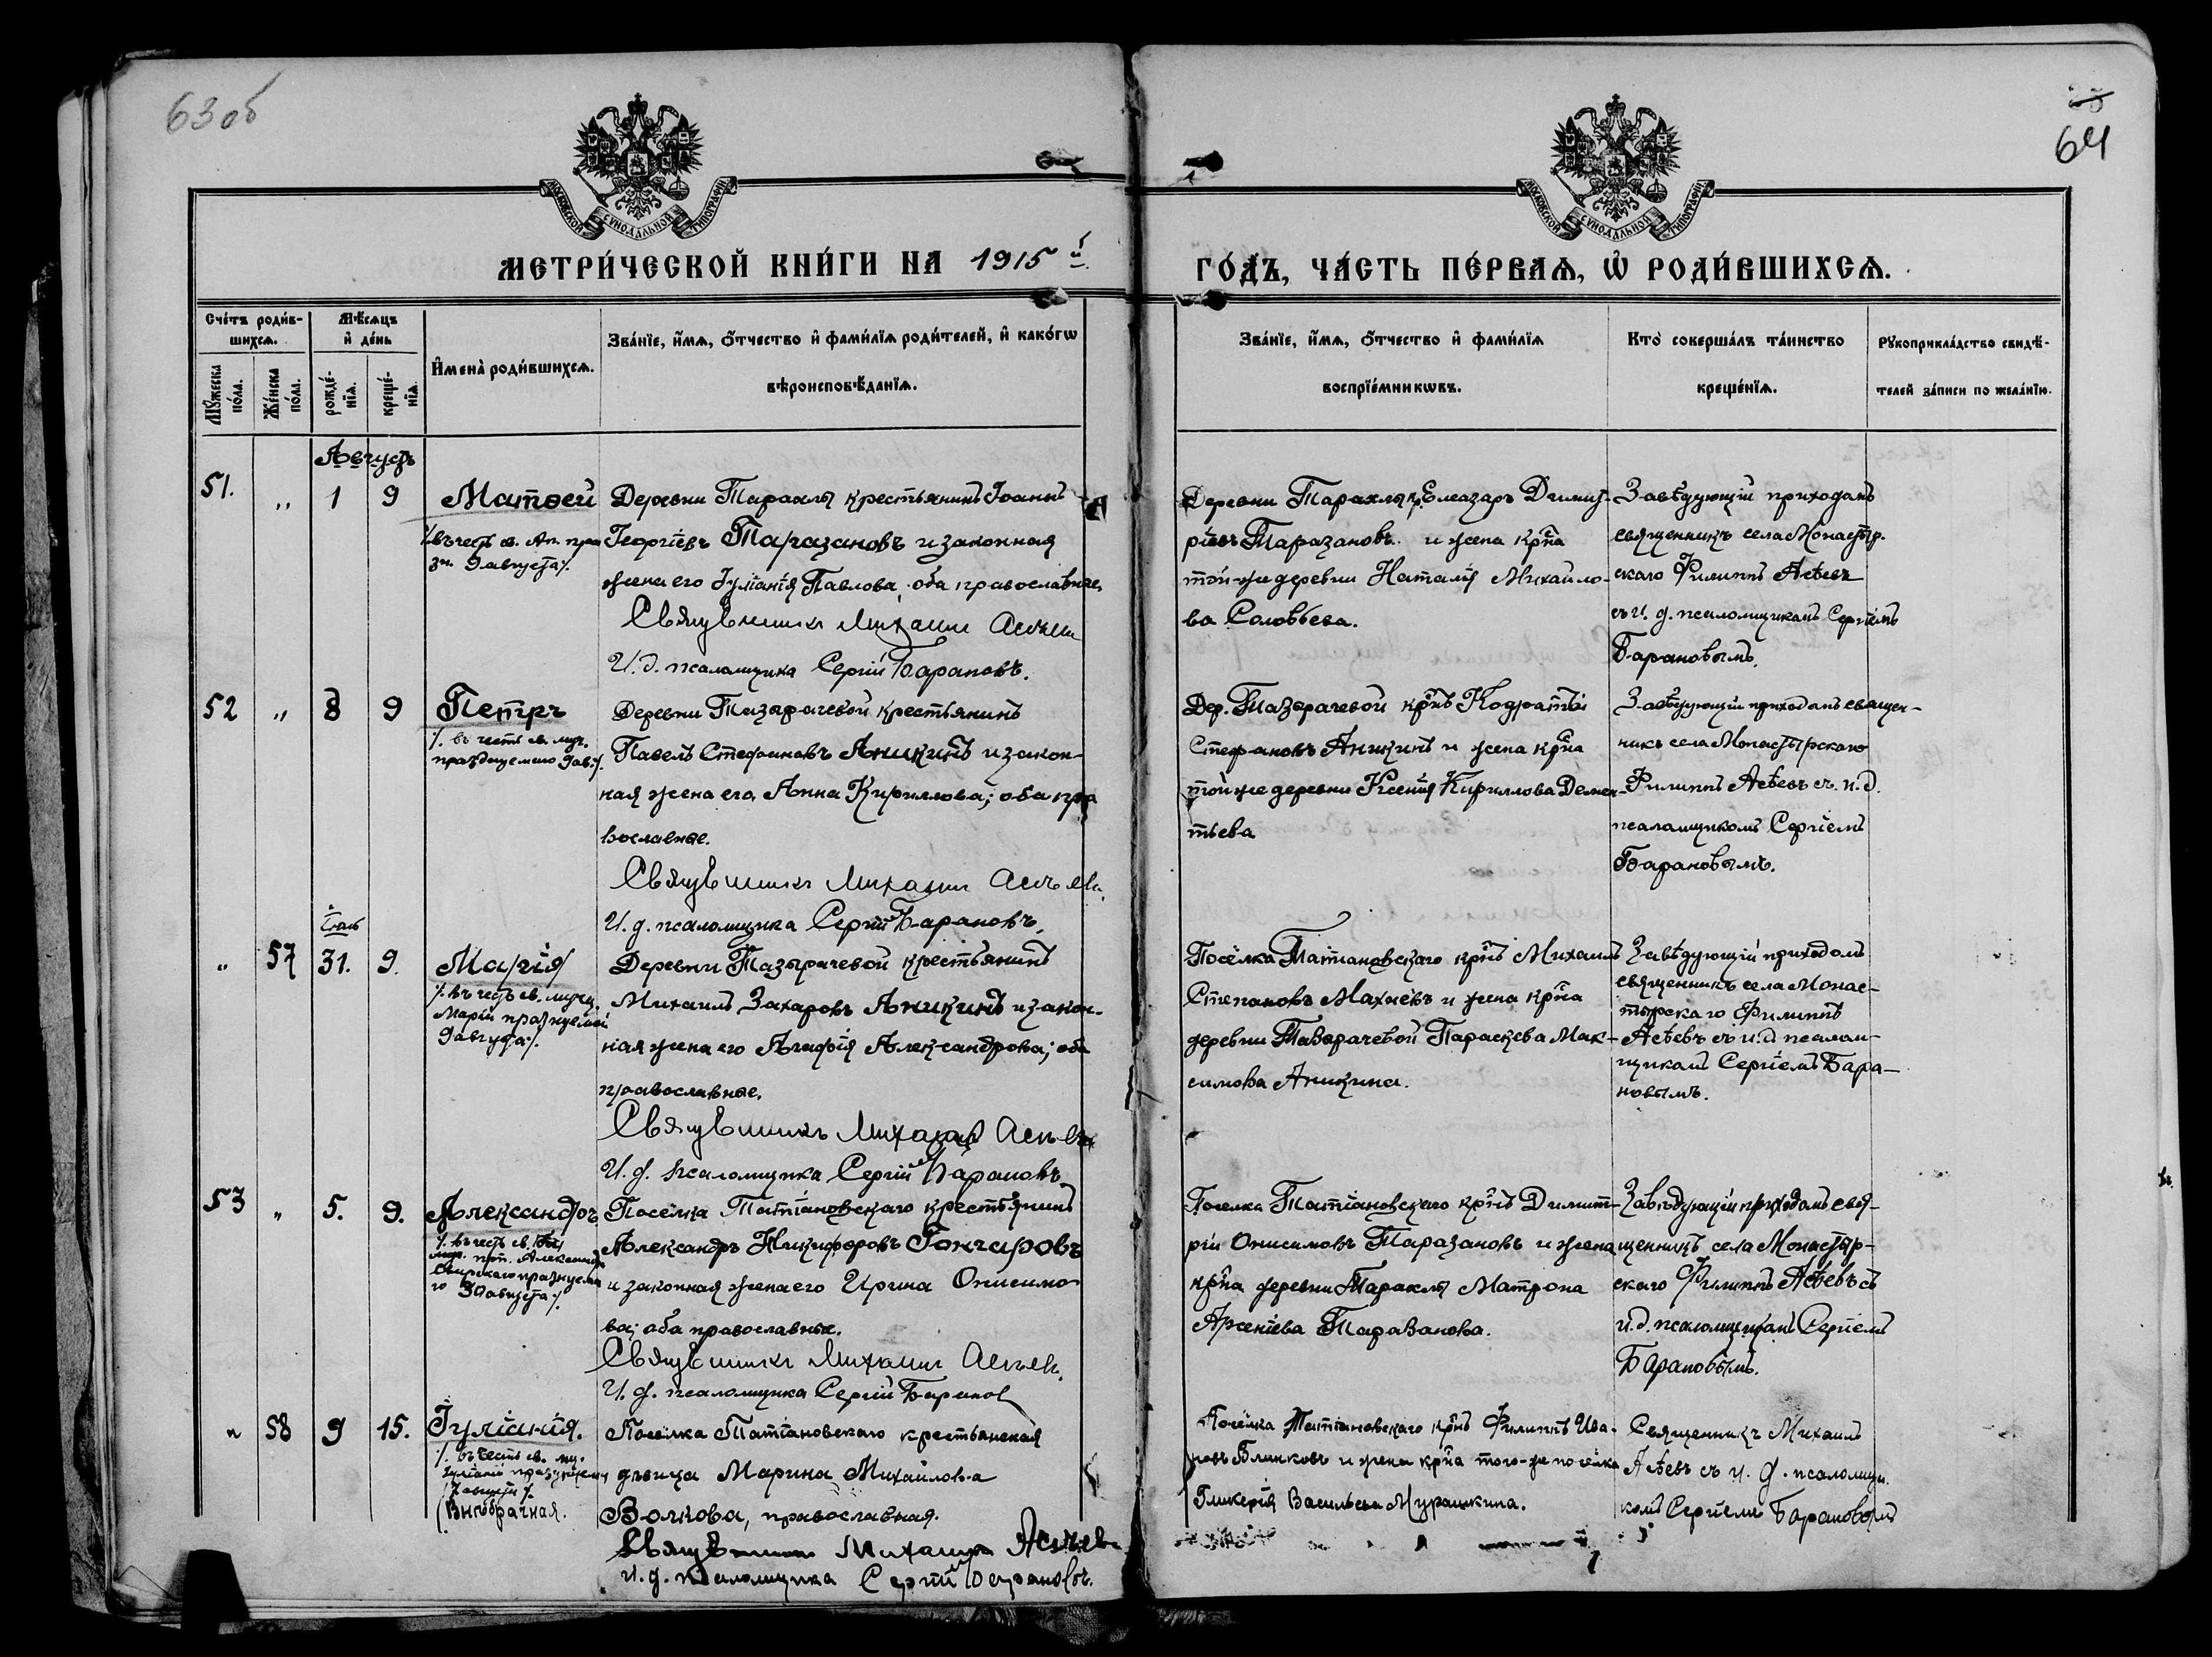 63 об
64
МОСКОВСКОЙ СѴНОДАЛЬНОЙ ТИПОГРАФІИ
МОСКОВСКОЙ СѴНОДАЛЬНОЙ ТИПОГРАФІИ
МЕТРИ́ЧЕСКОЙ КНИ́ГИ НА 1915 й
ГО́ДЪ, ЧА́СТЬ ПЕ́РВАѦ, Ѡ҆ РОДИ́ВШИХСѦ.
Сче́тъ роди́в-
шихсѧ.
Мꙋ́жеска
по́ла.
Же́нска
по́ла.
Мѣ́сѧцъ
и҆ де́нь
рожде́-
нїѧ.
креще́-
нїѧ.
И҆мена̀ роди́вшихсѧ.
Зва́нїе, и҆́мѧ, ѻ҆́тчество и҆ фами́лїѧ роди́телей, и҆ како́гѡ
вѣроисповѣ́данїѧ.
Зва́нїе, и҆́мѧ, ѻ҆́тчество и҆ фами́лїѧ
воспрїе́мникѡвъ.
Кто̀ соверша́лъ та́инство
креще́нїѧ.
Рꙋкоприкла́дство свидѣ́-
телей за́писи по жела́нїю.
Августъ
51. „ 1 9
Матѳей
въ честь св. Ап. пра
зн. 9 августа
Деревни Тараклы крестьянинъ Іоаннъ
Георгіевъ Таразановъ и законная
жена его Іуліанія Павлова, оба православные
Священникъ Михаилъ Асѣевъ
И.д. псаломщика Сергій Барановъ.
Деревни Тараклы кр. Елеазаръ Димит-
ріевъ Таразановъ и жена кр̃на
той-же деревни Наталія Михайло-
ва Соловьева.
Завѣдующій приходомъ
священникъ села Монастыр-
скаго Филиппъ Асѣевъ
съ и. д. псаломщикомъ Сергіемъ
Барановымъ.
52 „ 8 9
Петръ
въ честь св. муч.
празднуемаго 9 ав.
Деревни Тазарачевой крестьянинъ
Павелъ Стефановъ Аникинъ и закон-
ная жена его Анна Кириллова; оба пра
вославные.
Священникъ Михаилъ Асѣевъ
И.д. псаломщика Сергій Барановъ.
Дер. Тазарачевой кр̃нъ Кодратъ
Стефановъ Аникинъ и жена кр̃на
той же деревни Ксенія Кириллова Демен-
тьева
Завѣдующій приходомъ священ-
никъ села Монастырскаго
Филиппъ Асѣевъ съ и.д.
псаломщикомъ Сергіемъ
Барановымъ.
Іюль
„ 57 31. 9.
Марія
въ честь св. мучен.
Маріи празнуемой
9 августа
Деревни Тазырачевой крестьянинъ
Михаилъ Захаровъ Аникинъ и закон-
ная жена его Агафія Александрова; оба
православные.
Священникъ Михаилъ Асѣевъ
И.д. псаломщика Сергій Барановъ
Посёлка Татіановскаго кр̃нъ Михаилъ
Степановъ Махнёвъ и жена кр̃на
деревни Тазарачевой Параскева Мак-
симова Аникина.
Завѣдующій приходомъ
священникъ села Монас-
тырскаго Филиппъ
Асѣевъ съ и.д. псалом-
щикомъ Сергіемъ Бара-
новымъ.
53 „ 5. 9.
Александръ
въ честь св.
Александра
Свирскаго празнуема
го 30 августа
Посёлка Татіановскаго крестьянинъ
Александръ Никифоровъ Гончаровъ
и законная жена его Ирина Онисимо
ва; оба православные.
Священникъ Михаилъ Асѣевъ.
И.д. псаломщика Сергій Барановъ
Поселка Татіановскаго кр̃нъ Димит-
рій Онисимовъ Таразановъ и жена
кр̃на деревни Тараклы Матрона
Арсеніева Таразанова.
Завѣдующій приходомъ свя-
щенникъ села Монастыр-
скаго Филиппъ Асѣевъ съ
и.д. псаломщикомъ Сергіемъ
Барановымъ.
„ 58 9 15.
Іуліанія.
въ честь св. му.
Іуліаніи празднуемой
17 августа
Внѣбрачная.
Посёлка Татіановскаго крестьянская
дѣвица Марина Михайлова
Волкова, православная.
Священникъ Михаилъ Асѣевъ
И.д. псаломщика Сергій Барановъ.
Посёлка Татіановскаго кр̃нъ Филиппъ Ива-
новъ Блинковъ и жена кр̃на того-же посёлка
Гликерія Васильева Мурашкина.
Священникъ Михаилъ
Асѣевъ съ и. д. псаломщи-
комъ Сергіемъ Барановымъ